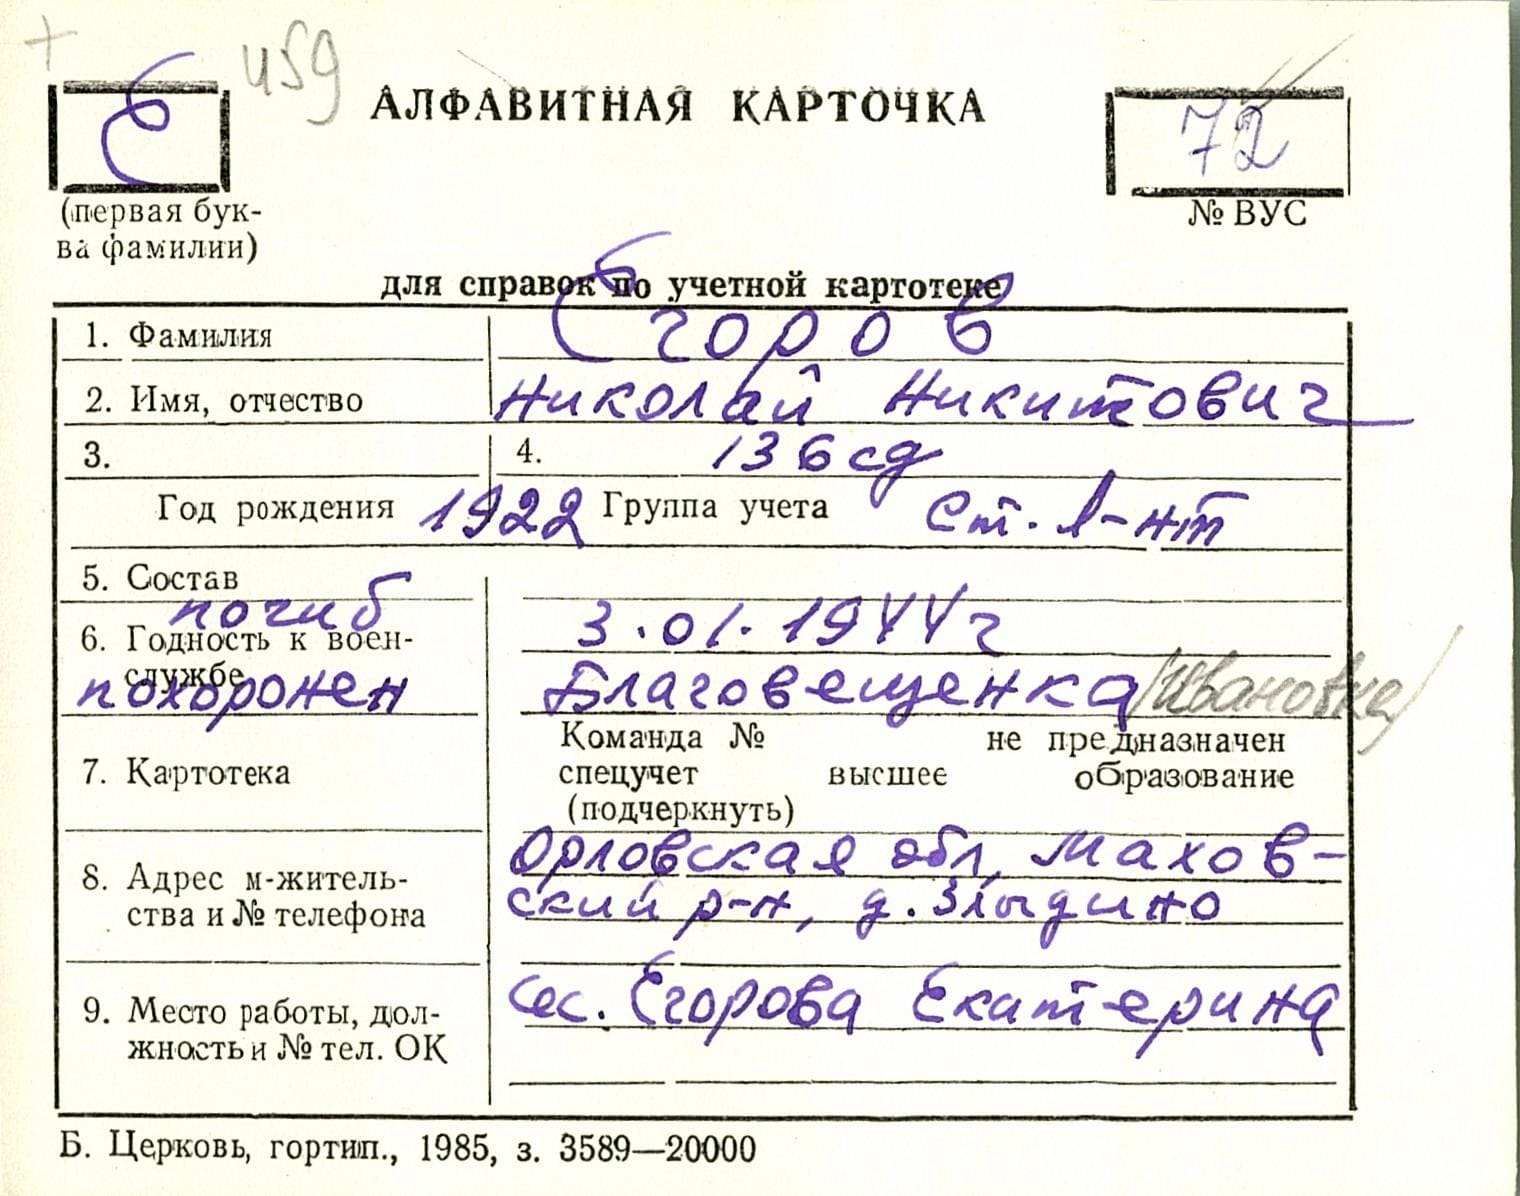 +
Е
459
АЛФАВИТНАЯ КАРТОЧКА
72
(первая бук-
ва фамилии)
№ ВУС
для справок по учетной картотеке
1. Фамилия Егоров
2. Имя, отчество Николай Никитович
3. 4. 136 сд
Год рождения 1922 Группа учета Ст. л-нт
5. Состав
погиб 3.01.1944 г
6. Годность к воен-
службе
похоронен Благовещенка /Ивановка/
7. Картотека
Команда № не предназначен
спецучет высшее образование
(подчеркнуть)
8. Адрес м-житель-
ства и № телефона
Орловская обл, Махов-
ский р-н, д. Злыдино
9. Место работы, дол-
жность и № тел. ОК
сес. Егорова Екатерина
Б. Церковь, гортип., 1985, з. 3589—20000